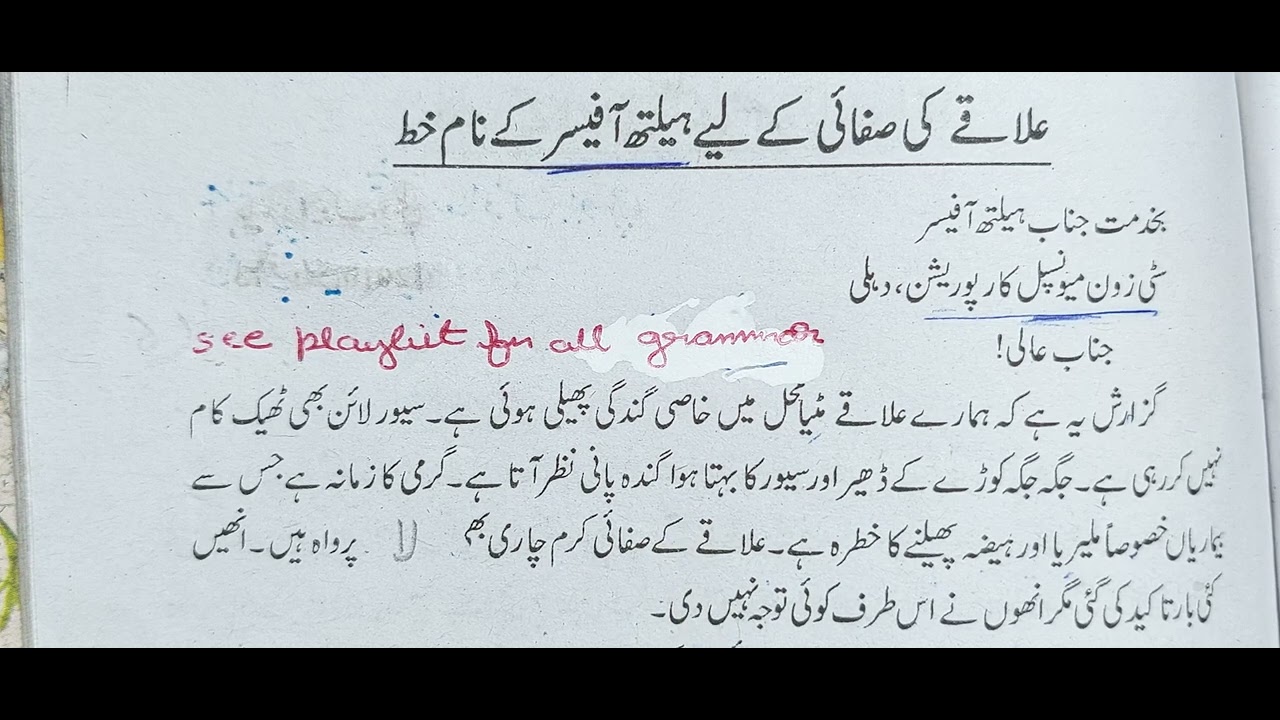 علاقے کی صفائی کے لیے ہیلتھ آفیسر کے نام خط
بخدمت جناب ہیلتھ آفیسر
سٹی زون میونسپل کارپوریشن، دہلی
جناب عالی!
see playlist for all grammar
گزارش یہ ہے کہ ہمارے علاقے مٹیا محل میں خاصی گندگی پھیلی ہوئی ہے۔ سیور لائن بھی ٹھیک کام
نہیں کر رہی ہے۔ جگہ جگہ کوڑے کے ڈھیر اور سیور کا بہتا ہوا گندہ پانی نظر آتا ہے۔ گرمی کا زمانہ ہے جس سے
بیماریاں خصوصاً ملیریا اور ہیضہ پھیلنے کا خطرہ ہے۔ علاقے کے صفائی کرم چاری بھی لا پرواہ ہیں۔ انھیں
کئی بار تاکید کی گئی مگر انھوں نے اس طرف کوئی توجہ نہیں دی۔